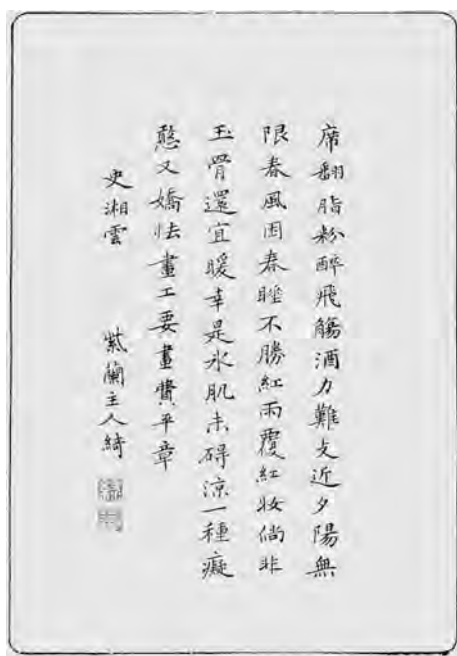 席翻脂粉醉飛觴酒力難支近夕陽無
限春風困春睡不勝紅雨覆紅妝倘非
玉骨還宜暖幸是氷肌未碍涼一種癡
憨又嬌怯畫工要畫費平章
史湘雲 紫蘭主人綺